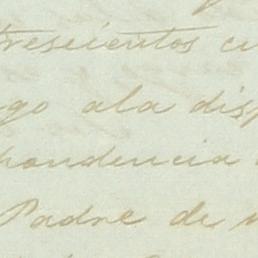 trescientos cu
go ala disp
pondencia
Padre de